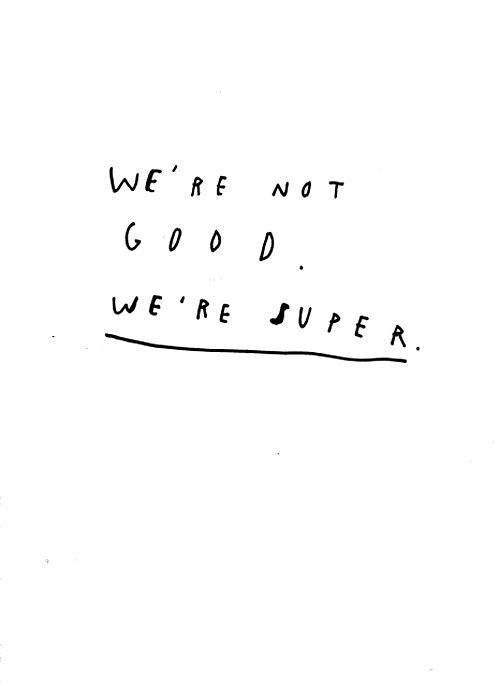 WE'RE NOT
GOOD.
WE'RE SUPER.